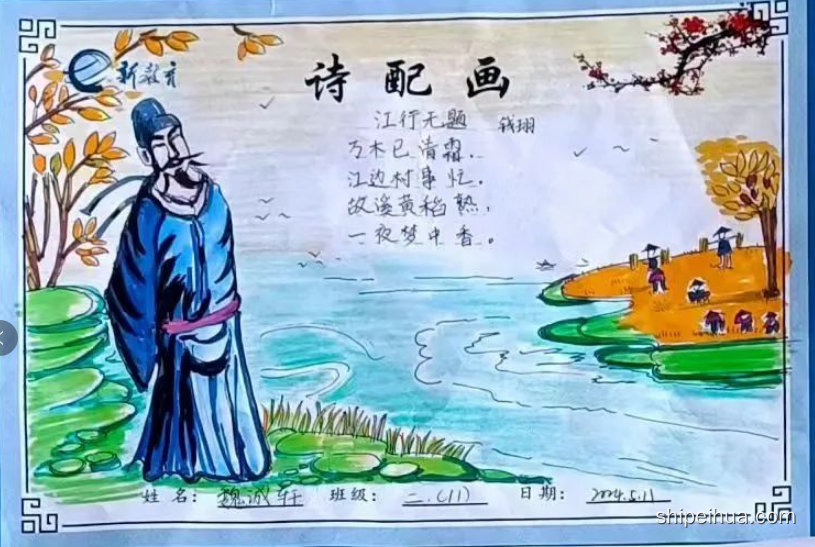 新教育
诗配画
江行无题 钱珝
万木已清霜.
江边村事忙.
故溪黄稻熟,
一夜梦中香。
姓名: 魏诚轩 班级: 二.(11) 日期: 2024.5.11
shipeihua.com